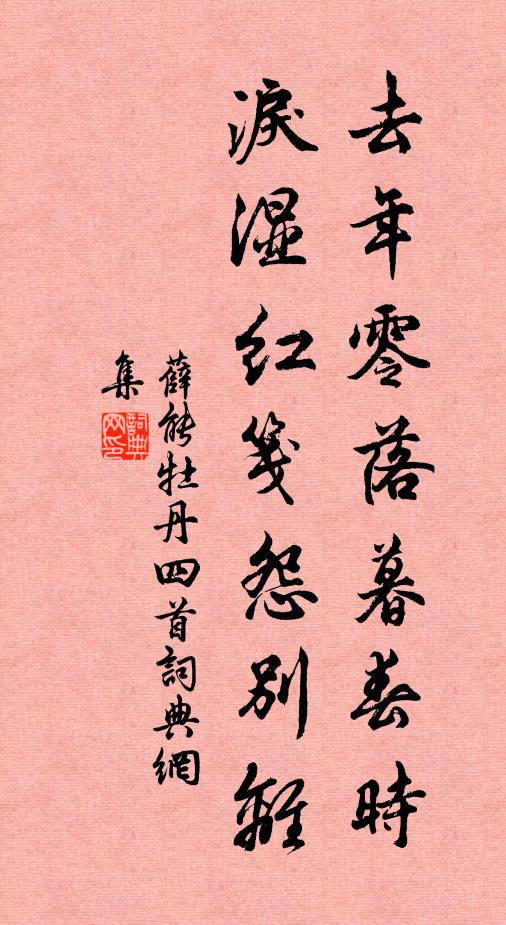 去年零落暮春時
淚湿红箋怨別離
薛能牡丹四首詞典網
集
詞典
网印